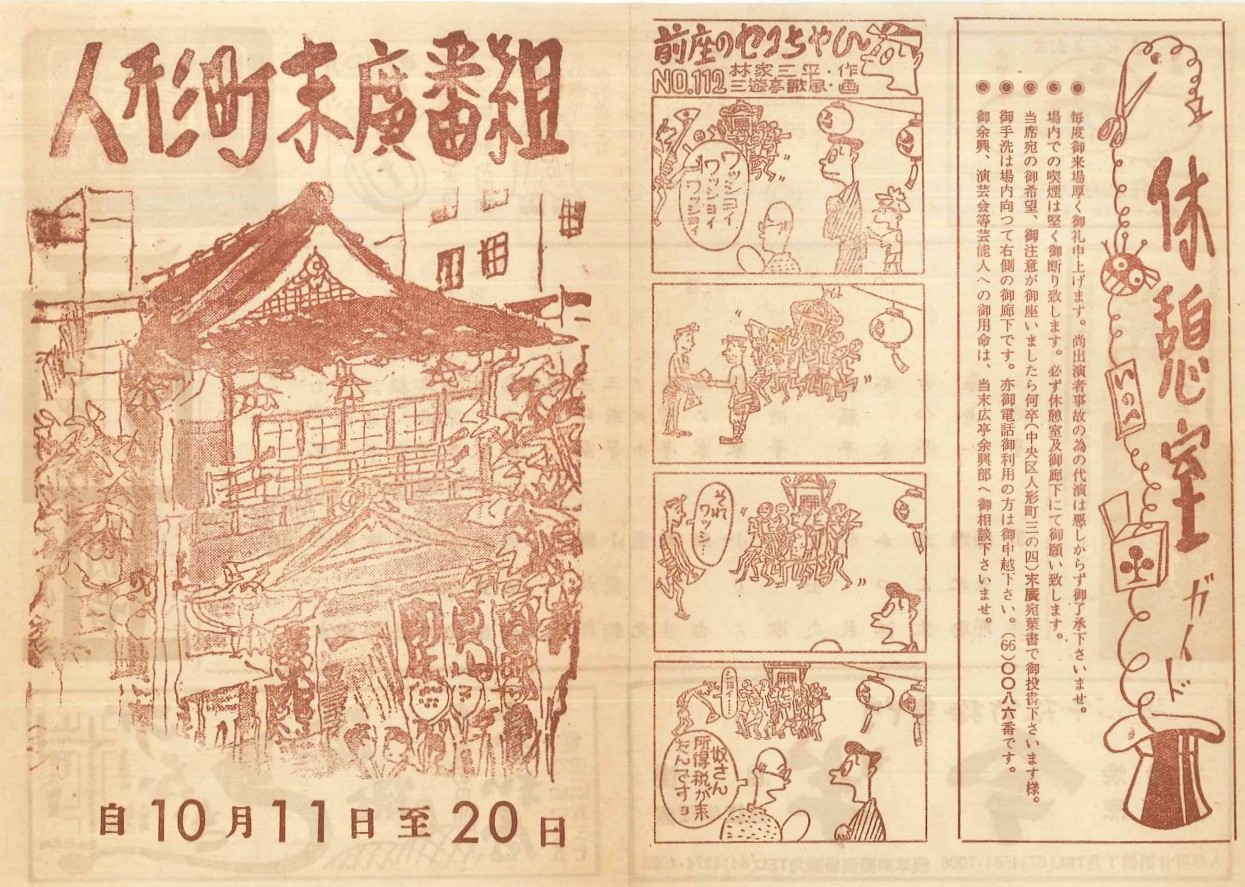 人形町末廣番組
自10月11日至20日
前座のセコちゃん
NO.112
林家三平・作
三遊亭歌風・画
ワッショイ
ワッショイ
それ
ワッショ
ワッショイ
奴さん
所得税が来
たんですョ
休憩室ガイド
いのへ
◉毎度御来場厚く御礼申上げます。尚出演者事故の為の代演は悪しからず御了承下さいませ。
◉場内での喫煙は堅く御断り致します。必ず休憩室及御廊下にて御願い致します。
◉当席宛の御希望、御注意が御座いましたら何卒(中央区人形町三の四)末廣宛葉書で御投書下さいます様。
◉御手洗は場内向つて右側の御廊下です。亦御電話御利用の方は御申越下さい。(66)〇〇八六番です。
◉御余興、演芸会等芸能人への御用命は、当末広亭余興部へ御相談下さいませ。